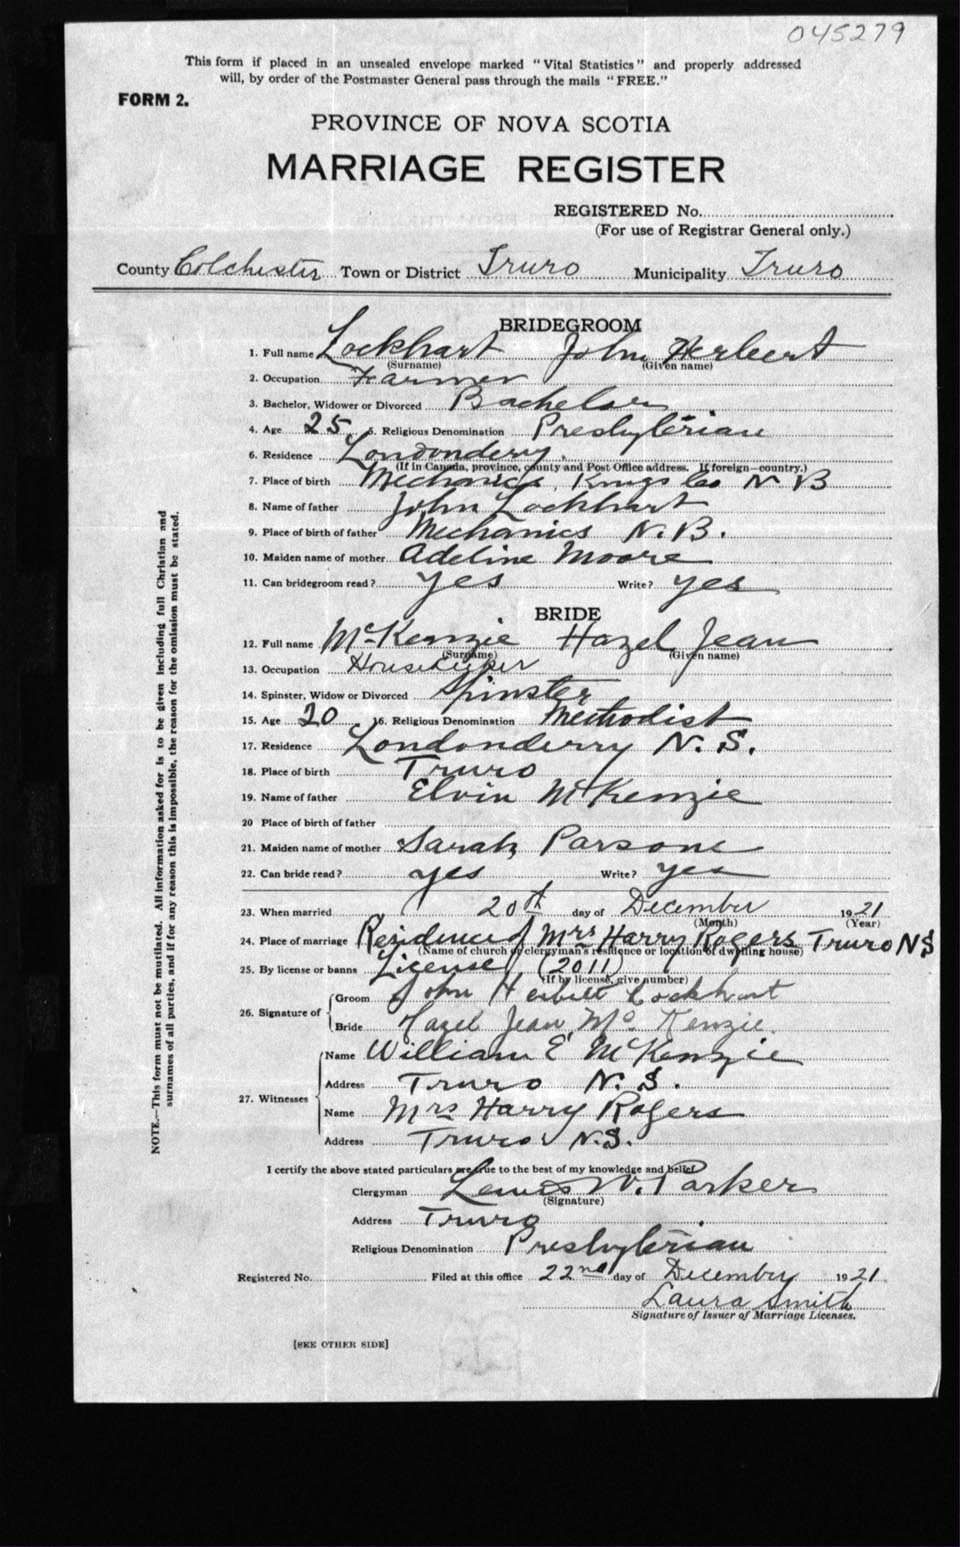 045279
This form if placed in an unsealed envelope marked "Vital Statistics" and properly addressed
will, by order of the Postmaster General pass through the mails "FREE."
FORM 2.
PROVINCE OF NOVA SCOTIA
MARRIAGE REGISTER
REGISTERED No.
(For use of Registrar General only.)
County Colchester Town or District Truro Municipality Truro
BRIDEGROOM
1. Full name Lockhart John Herbert
(Surname) (Given name)
2. Occupation Farmer
3. Bachelor, Widower or Divorced Bachelor
4. Age 25 5. Religious Denomination Presbyterian
6. Residence Londondery.
(If in Canada, province, county and Post Office address. If foreign—country.)
7. Place of birth Mechanics, Kings Co N B
8. Name of father John Lockhart
9. Place of birth of father Mechanics N. B.
10. Maiden name of mother Adeline Moore
11. Can bridegroom read? yes Write? yes
BRIDE
12. Full name McKenzie Hazel Jean
(Surname) (Given name)
13. Occupation Housekeeper
14. Spinster, Widow or Divorced Spinster
15. Age 20 16. Religious Denomination Methodist
17. Residence Londonderry N. S.
18. Place of birth Truro
19. Name of father Elvin McKenzie
20 Place of birth of father
21. Maiden name of mother Sarah Parsons
22. Can bride read? yes Write? yes
23. When married 20th day of December 1921
(Month) (Year)
24. Place of marriage Residence of Mrs Harry Rogers Truro NS
(Name of church or clergyman's residence or location of dwelling house)
25. By license or banns License (2011)
(If by license, give number)
26. Signature of Groom John Herbert Lockhart
Bride Hazel Jean Mc Kenzie.
27. Witnesses Name William E McKenzie
Address Truro N. S.
Name Mrs Harry Rogers
Address Truro N.S.
I certify the above stated particulars are true to the best of my knowledge and belief
Clergyman Lewis W. Parker
(Signature)
Address Truro
Religious Denomination Presbyterian
Registered No. Filed at this office 22nd day of December 1921
Laura Smith
Signature of Issuer of Marriage Licenses.
[SEE OTHER SIDE]
NOTE.—This form must not be mutilated. All information asked for is to be given including full Christian and
surnames of all parties, and if for any reason this is impossible, the reason for the omission must be stated.